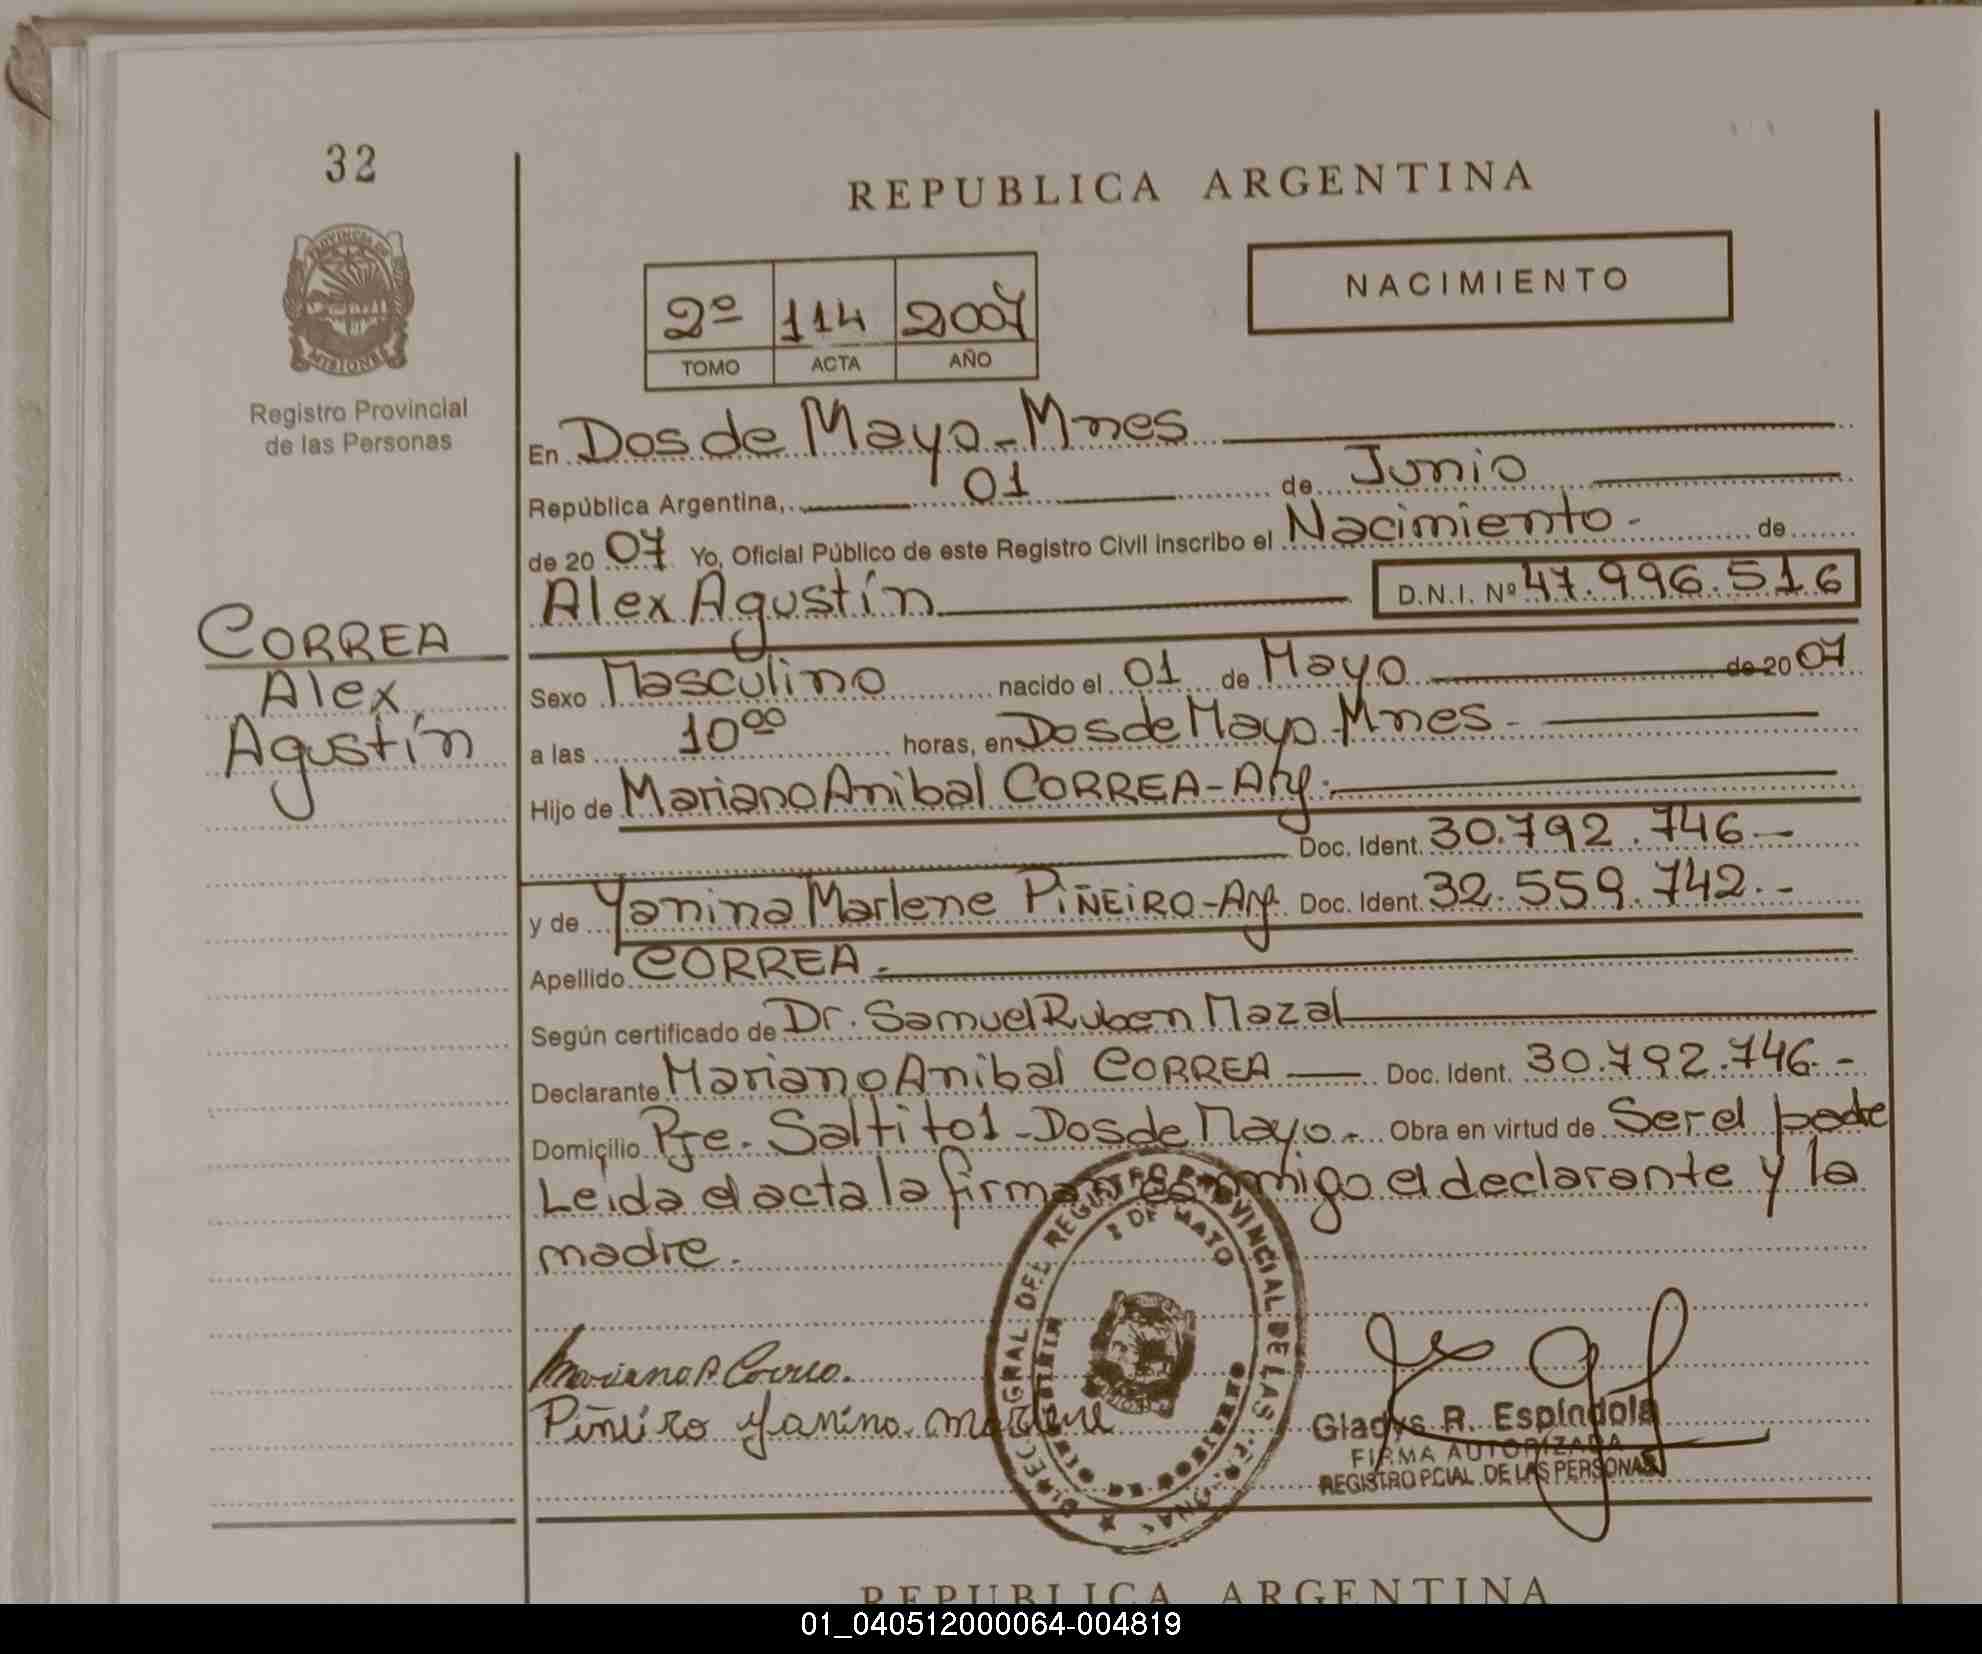 32
REPUBLICA ARGENTINA
PROVINCIA DE
MISIONES
Registro Provincial
de las Personas
2º 114 2007
TOMO ACTA AÑO
NACIMIENTO
En Dos de Mayo - Mnes
República Argentina, 01 de Junio
de 20 07 Yo, Oficial Público de este Registro Civil inscribo el Nacimiento - de
Alex Agustín D.N.I. Nº 47.996.516
CORREA
Alex
Agustín
Sexo Masculino nacido el 01 de Mayo de 20 07
a las 10⁰⁰ horas, en Dos de Mayo - Mnes -
Hijo de Mariano Anibal CORREA - Arg.
Doc. Ident. 30.792.746 -
y de Yanina Marlene PIÑEIRO - Arg. Doc. Ident. 32.559.742. -
Apellido CORREA -
Según certificado de Dr. Samuel Ruben Mazal
Declarante Mariano Anibal CORREA Doc. Ident. 30.792.746. -
Domicilio Pje. Saltito 1 - Dos de Mayo - Obra en virtud de Ser el padre
Leida el acta la firman conmigo el declarante y la
madre.
Mariano A. Correa.
Piñeiro Yanina Marlene
DIREC. GRAL DEL REGISTRO PROVINCIAL DE LAS PERSONAS
2 DE MAYO
Gladys R. Espíndola
FIRMA AUTORIZADA
REGISTRO PCIAL. DE LAS PERSONAS
REPUBLICA ARGENTINA
01_040512000064-004819